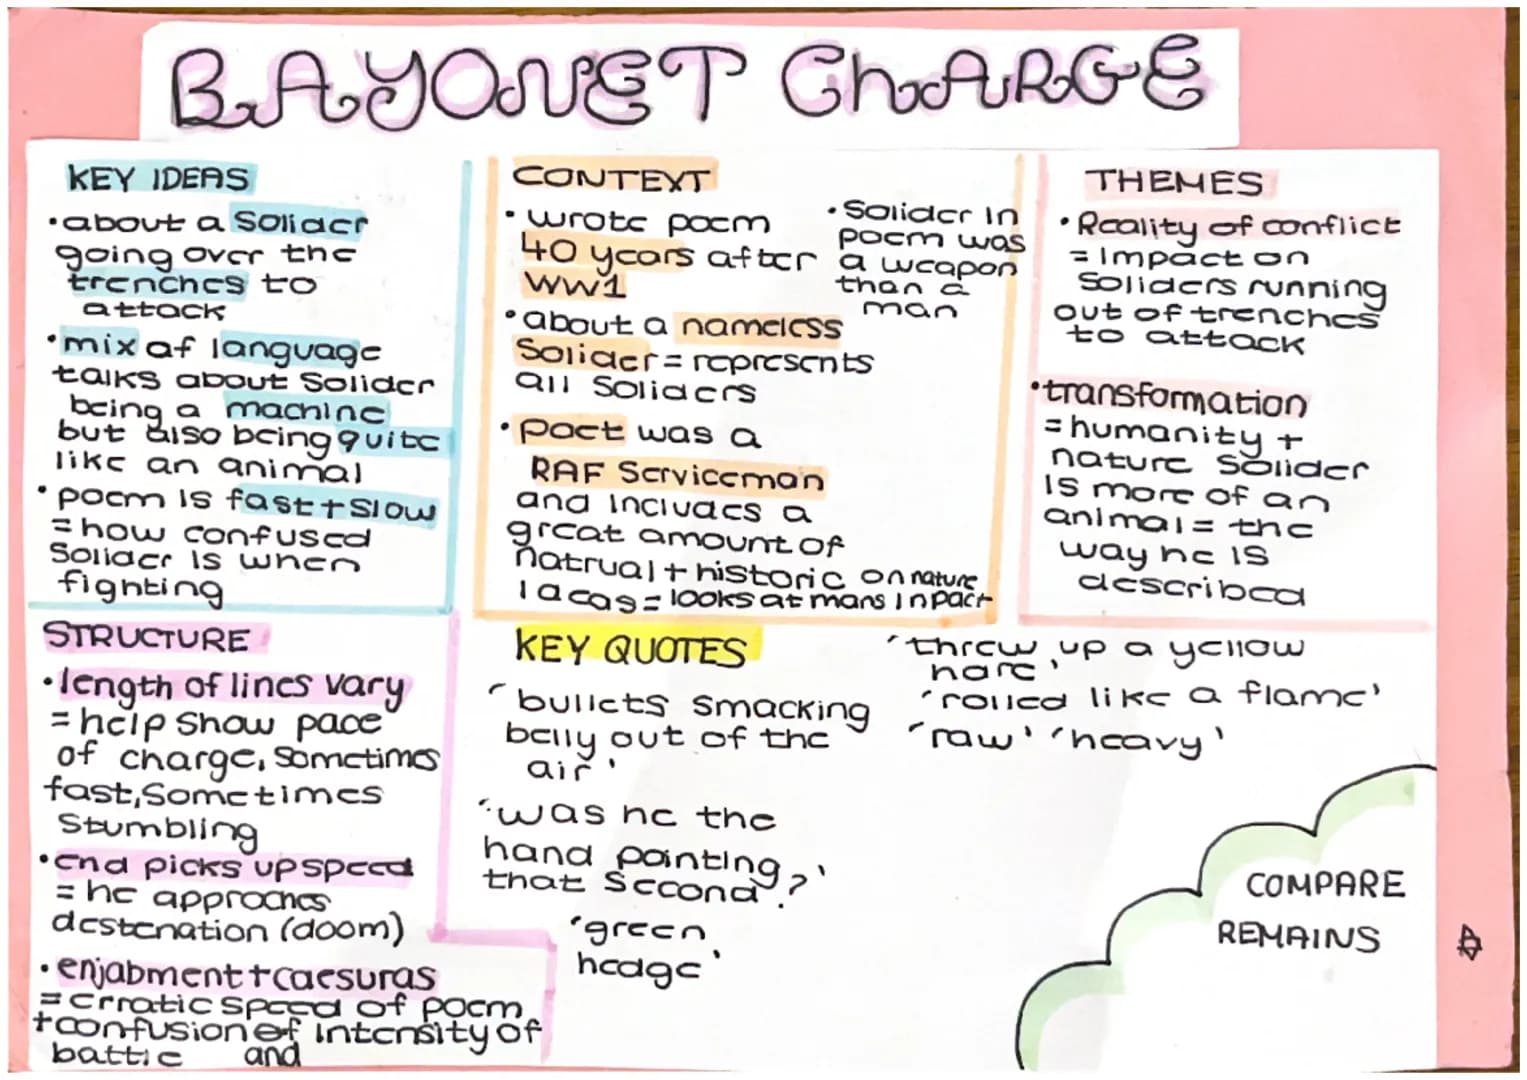 BAYONET ChARGE
KEY IDEAS
•about a Solider
going over the
trenches to
attack
•mix of language
talks about Solider
being a machine
but also being quite
like an animal
•poem is fast+slow
=how confused
Solider is when
fighting
CONTEXT
•wrote poem
40 years after
WW1
•about a nameless
Solider=represents
all Soliders
•poet was a
RAF Serviceman
and includes a
great amount of
natrual+historic on nature
ideas=looks at mans inpact
•Solider in
poem was
a weapon
than a
man
THEMES
•Reality of conflict
=impact on
Soliders running
out of trenches
to attack
•transformation
=humanity +
nature Solider
is more of an
animal=the
way he is
described
STRUCTURE
•length of lines vary
=help show pace
of charge, sometimes
fast, Sometimes
Stumbling
•end picks up speed
=he approaches
destenation (doom)
•enjabment+caesuras
=erratic speed of poem
+confusion of intensity of
battle and
KEY QUOTES
'bullets smacking
belly out of the
air'
'was he the
hand pointing
that second?'
'green
hedge'
'threw up a yellow
hare'
'rolled like a flame'
'raw' 'heavy'
COMPARE
REMAINS